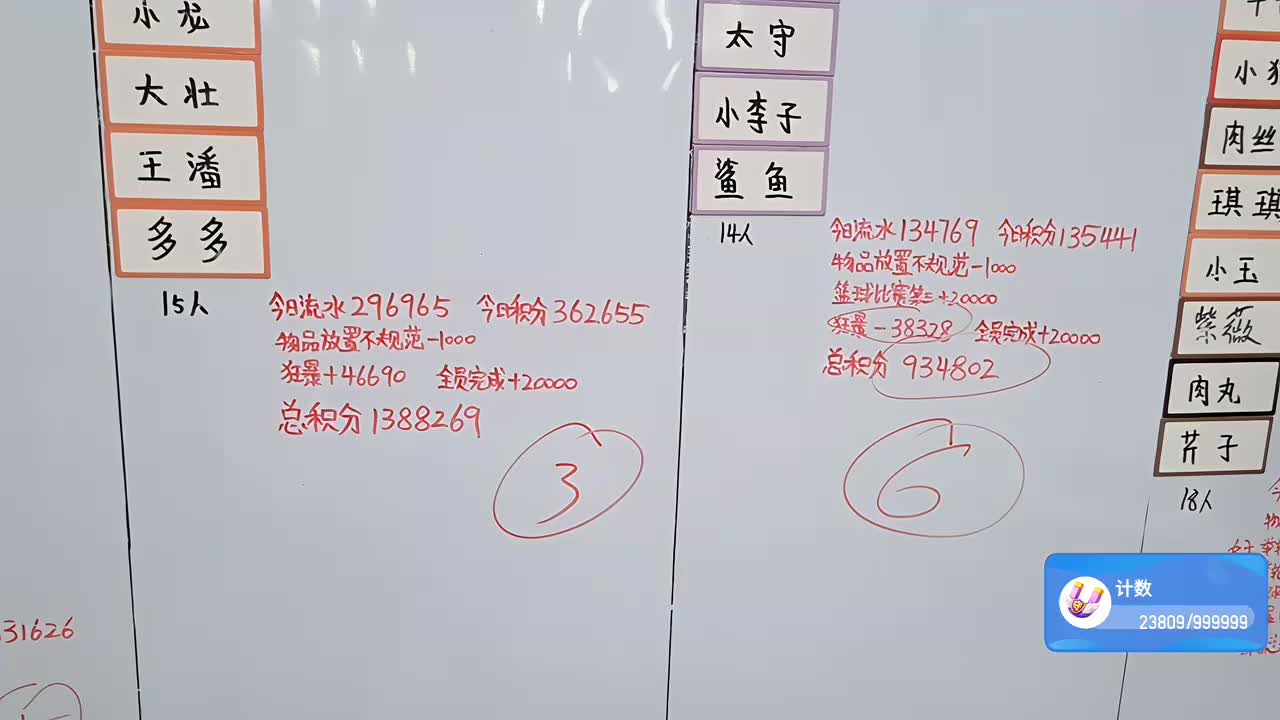 小龙
大壮
王潘
多多
15人
今日流水296965 今日积分362655
物品放置不规范-1000
狂暴+46690 全员完成+20000
总积分1388269
3
太守
小李子
鲨鱼
14人
今日流水134769 今日积分135441
物品放置不规范-1000
篮球比赛第三+20000
狂暴-38328 全员完成+20000
总积分 934802
6
肉丝
琪琪
小玉
紫薇
肉丸
芹子
18人
31626
计数
23809/999999